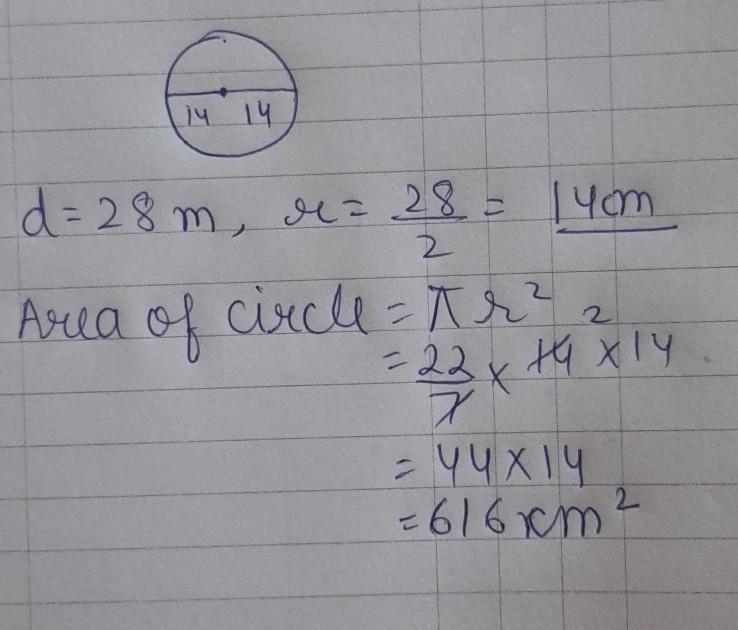 14 14
d = 28 m, r = 28/2 = 14cm
Area of circle = πr²
= 22/7 × 14 × 14 2
= 44 × 14
= 616 cm²